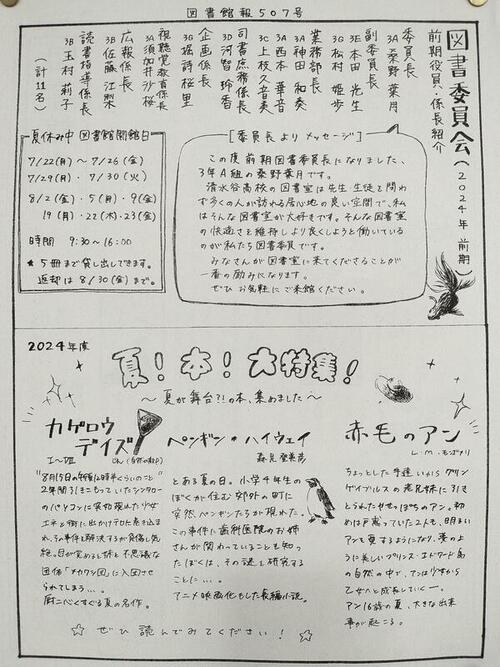 図書館報507号
図書委員会(2024年 前期)
前期役員・係長紹介
委員長
3A 桑野 葉月
副委員長
3E 本田 光生
3G 松村 姫歩
業務部長
3A 神田 和奏
3A 西本 華音
3C 上枝 久音美
司書庶務係長
3D 河智 玲香
企画係長
3G 堀 詩桜里
視聴覚教育係長
3A 須加井 沙桜
広報係長
3B 佐藤 江梨
読書指導係長
3B 玉村 莉子
(計11名)
[委員長より メッセージ]
この度前期図書委員長になりました、
3年A組の桑野葉月です。
清水谷高校の図書室は先生生徒を問わ
ず多くの人が訪れる居心地の良い空間で、私
はそんな図書室が大好きです。そんな図書室
の快適さを維持しより良くしようと働いている
のが私たち図書委員です。
みなさんが図書室に来てくださることが
一番の励みになります。
ぜひお気軽にご来館ください。
夏休み中 図書館開館日
7/22(月)〜7/26(金)
7/29(月)・7/30(火)
8/2(金)・5(月)・9(金)
19(月)・22(木)・23(金)
時間 9:30〜16:00
★5冊まで貸し出しできます。
返却は8/30(金)まで。
2024年度
夏!本!大特集!
〜夏が舞台?!の本、集めました〜
カゲロウ
デイズ
I〜VIII じん(自然の敵P)
"8月15日の午後12時半くらいのこと"
2年間引きこもっていたシンタロー
のパソコンに突如現れた少女
エネと街に出かけテロに巻き込ま
れ、その事件を解決するが負傷し気
絶。目が覚めると妙で不思議な
団体「メカクシ団」に入団させ
られてしまう…。
厨二心くすぐる夏の名作。
ペンギン・ハイウェイ
森見登美彦
とある夏の日。小学4年生の
ぼくが住む郊外の町に
突然ペンギンたちが現れた。
この事件に歯科医院のお姉
さんが関わっていることを知っ
たぼくは、その謎を研究する
ことに…。
アニメ映画化もした長編小説。
赤毛のアン
L.M.モンゴメリ
ちょっとした手違いからグリン
ゲイブルスの老兄妹に引き
とられたやせっぽちのアン。初
めは戸惑っていた2人も、明るい
アンを愛するようになり、夢のよ
うに美しいプリンス・エドワード島
の自然の中で、アンは少女から
乙女へと成長していく―。
アン16歳の夏、大きな出来
事が起こる。
☆ ぜひ読んでみてください! ☆